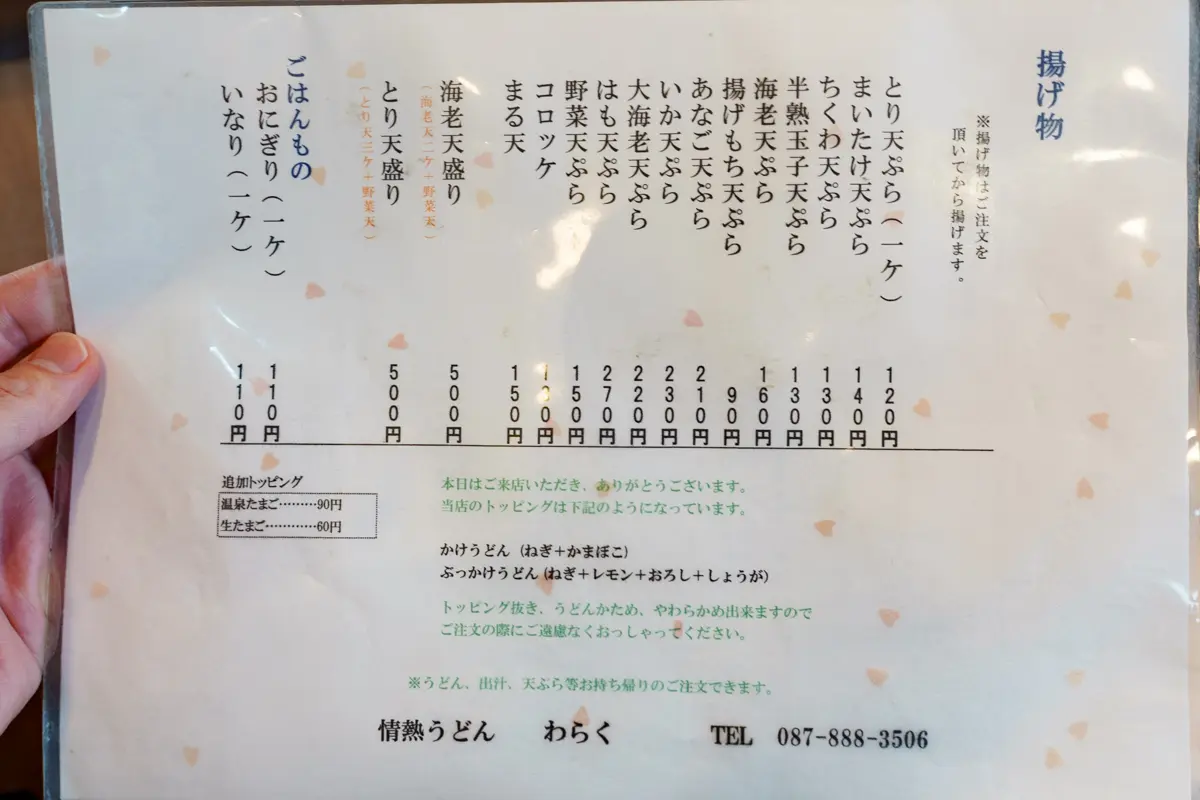 揚げ物
※揚げ物はご注文を
頂いてから揚げます。
とり天ぷら(一ケ) 120円
まいたけ天ぷら 140円
ちくわ天ぷら 130円
半熟玉子天ぷら 130円
海老天ぷら 160円
揚げもち天ぷら 90円
あなご天ぷら 210円
いか天ぷら 230円
大海老天ぷら 220円
はも天ぷら 270円
野菜天ぷら 150円
コロッケ
まる天 150円
海老天盛り 500円
(海老天二ケ+野菜天)
とり天盛り 500円
(とり天三ケ+野菜天)
ごはんもの
おにぎり(一ケ) 110円
いなり(一ケ) 110円
追加トッピング
温泉たまご………90円
生たまご…………60円
本日はご来店いただき、ありがとうございます。
当店のトッピングは下記のようになっています。
かけうどん(ねぎ+かまぼこ)
ぶっかけうどん(ねぎ+レモン+おろし+しょうが)
トッピング抜き、うどんかため、やわらかめ出来ますので
ご注文の際にご遠慮なくおっしゃってください。
※うどん、出汁、天ぷら等お持ち帰りのご注文できます。
情熱うどん わらく TEL 087-888-3506